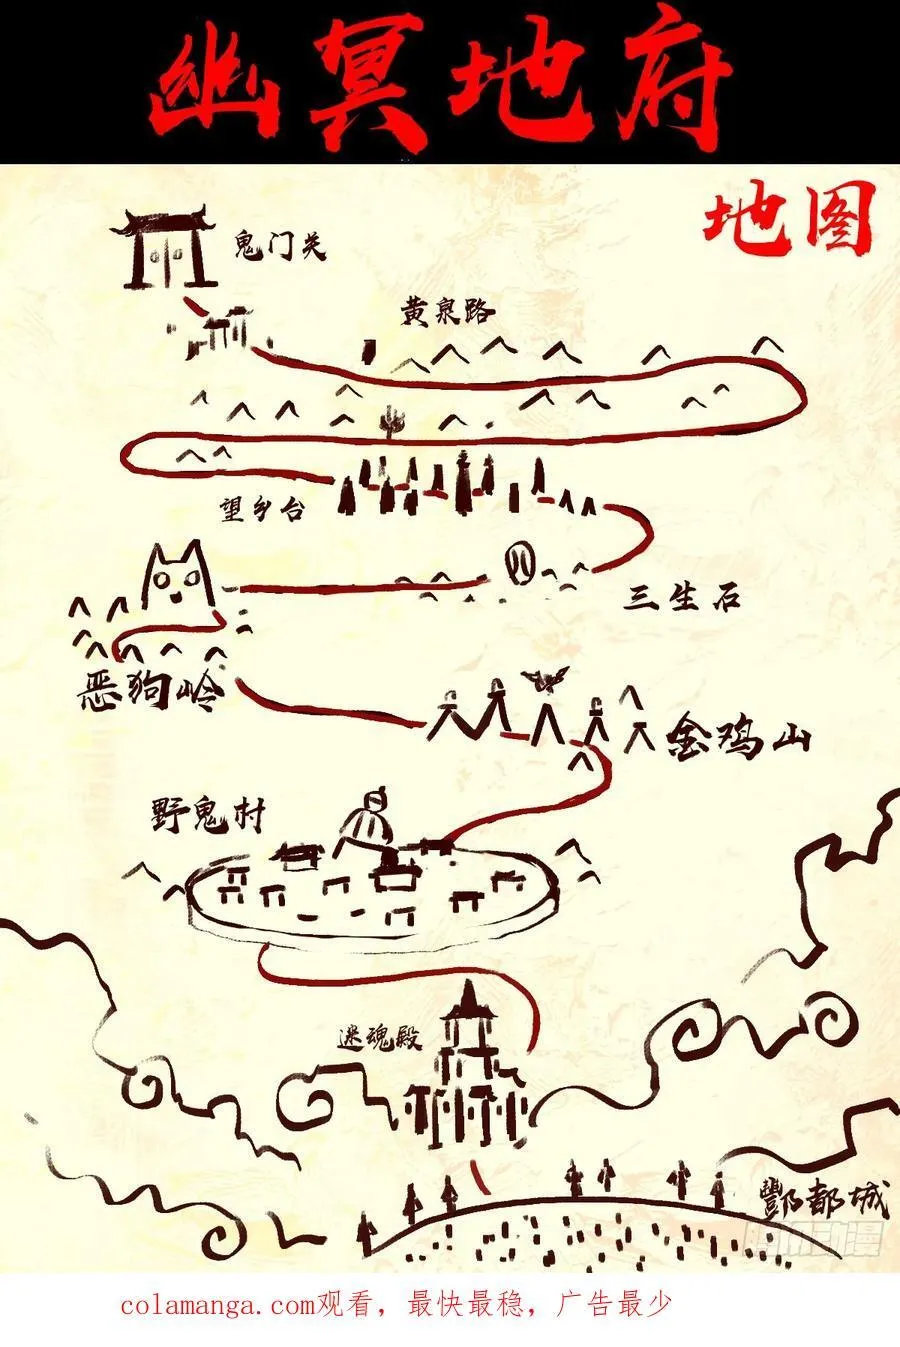 幽冥地府
地图
鬼门关
黄泉路
望乡台
三生石
恶狗岭
金鸡山
野鬼村
迷魂殿
酆都城
colamanga.com观看，最快最稳，广告最少